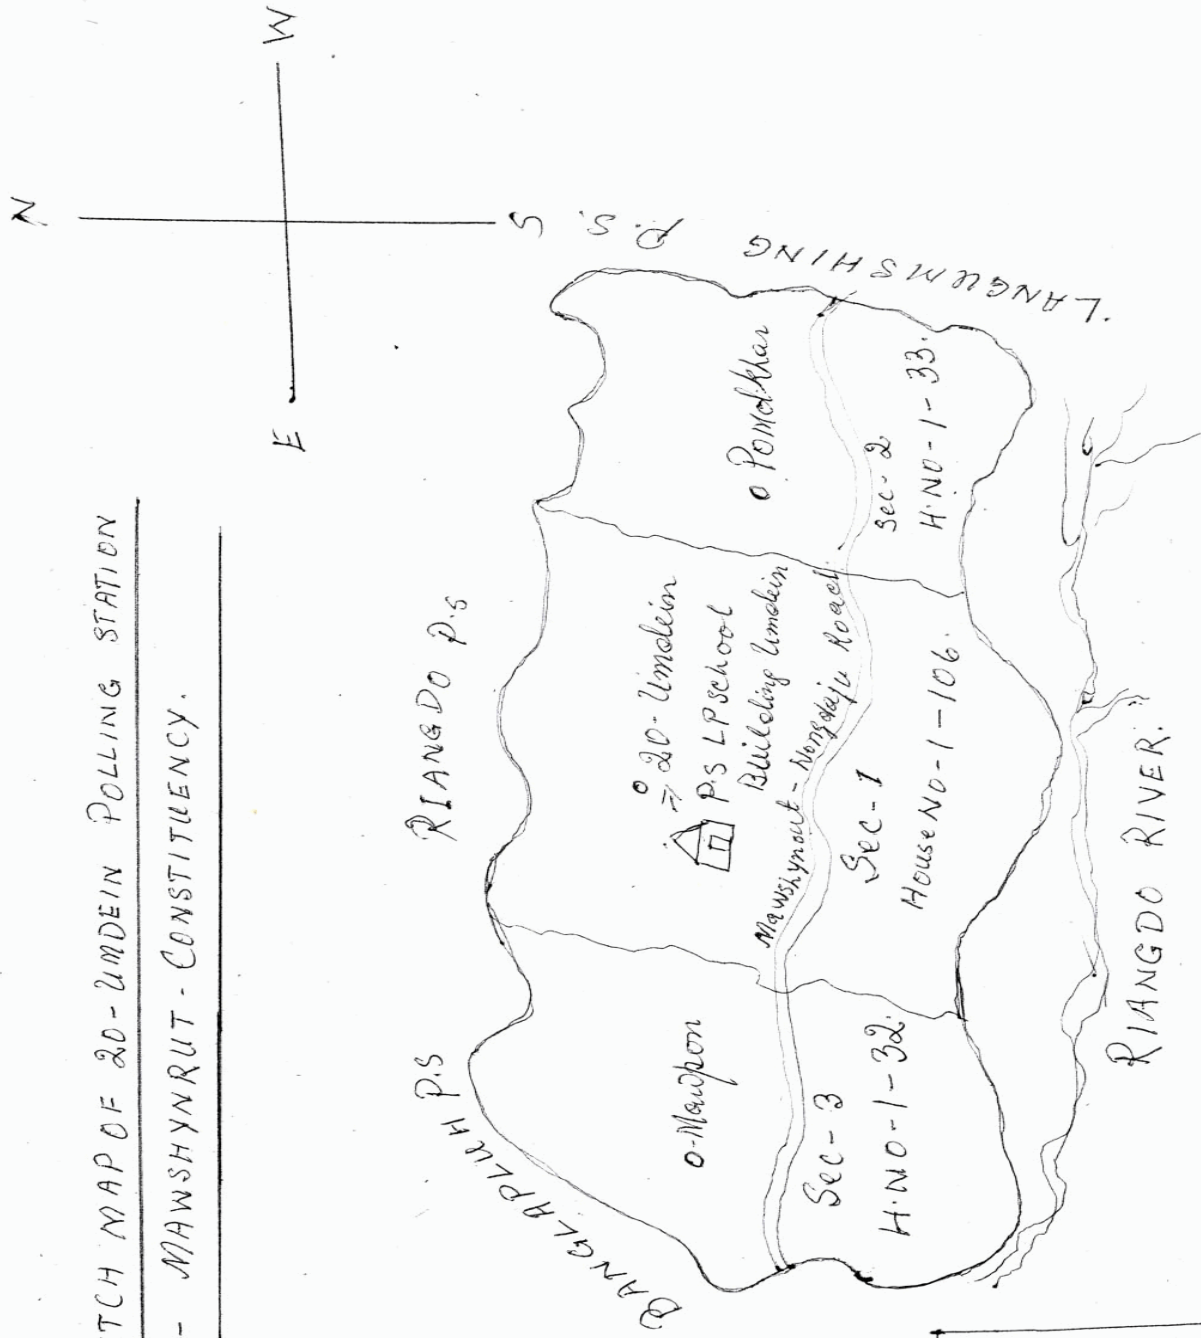 TCH MAP OF 20-UMDEIN POLLING STATION
- MAWSHYNRUT - CONSTITUENCY.
N
W
E
S
RIANGDO P.S
BANGLAPLUH P.S
LANGUMSHING P.S.
o-Mawpon
20-Umdein
P.S LP School
Building Umdein
o Pomdkhar
Mawshynrut - Nongdaju Road.
Sec-3
H.NO-1-32.
Sec-1
House NO-1-106.
Sec-2
H.NO-1-33.
RIANGDO RIVER.